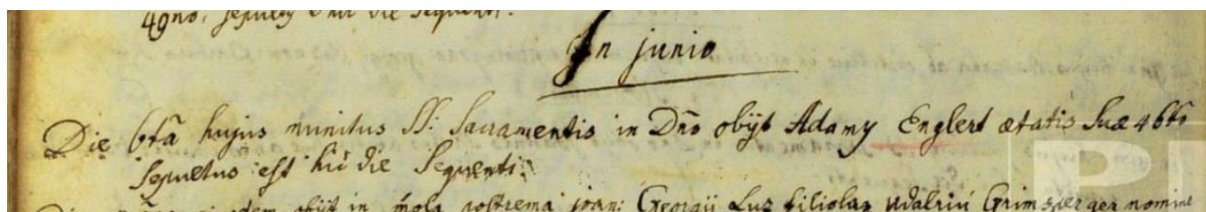 49no, sepultus hic die sequenti.
In junio
Die 6ta hujus munitus SS: Sacramentis in Dno obijt Adamus Englert ætatis suæ 46to
Sepultus est hic die Sequenti.
ejusdem obijt in postrema joan: Georgij Luz filiolus Udalrici Grimsperger nomine